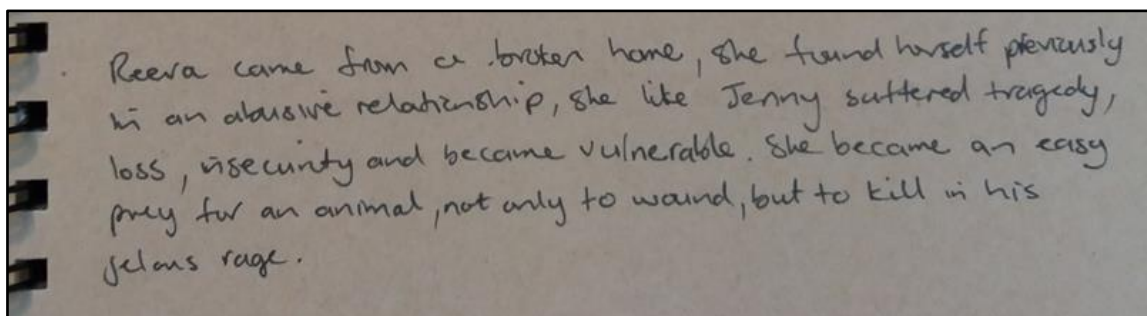 Reeva came from a broken home, she found herself previously
in an abusive relationship, she like Jenny suffered tragedy,
loss, insecurity and became vulnerable. She became an easy
prey for an animal, not only to wound, but to kill in his
jelous rage.